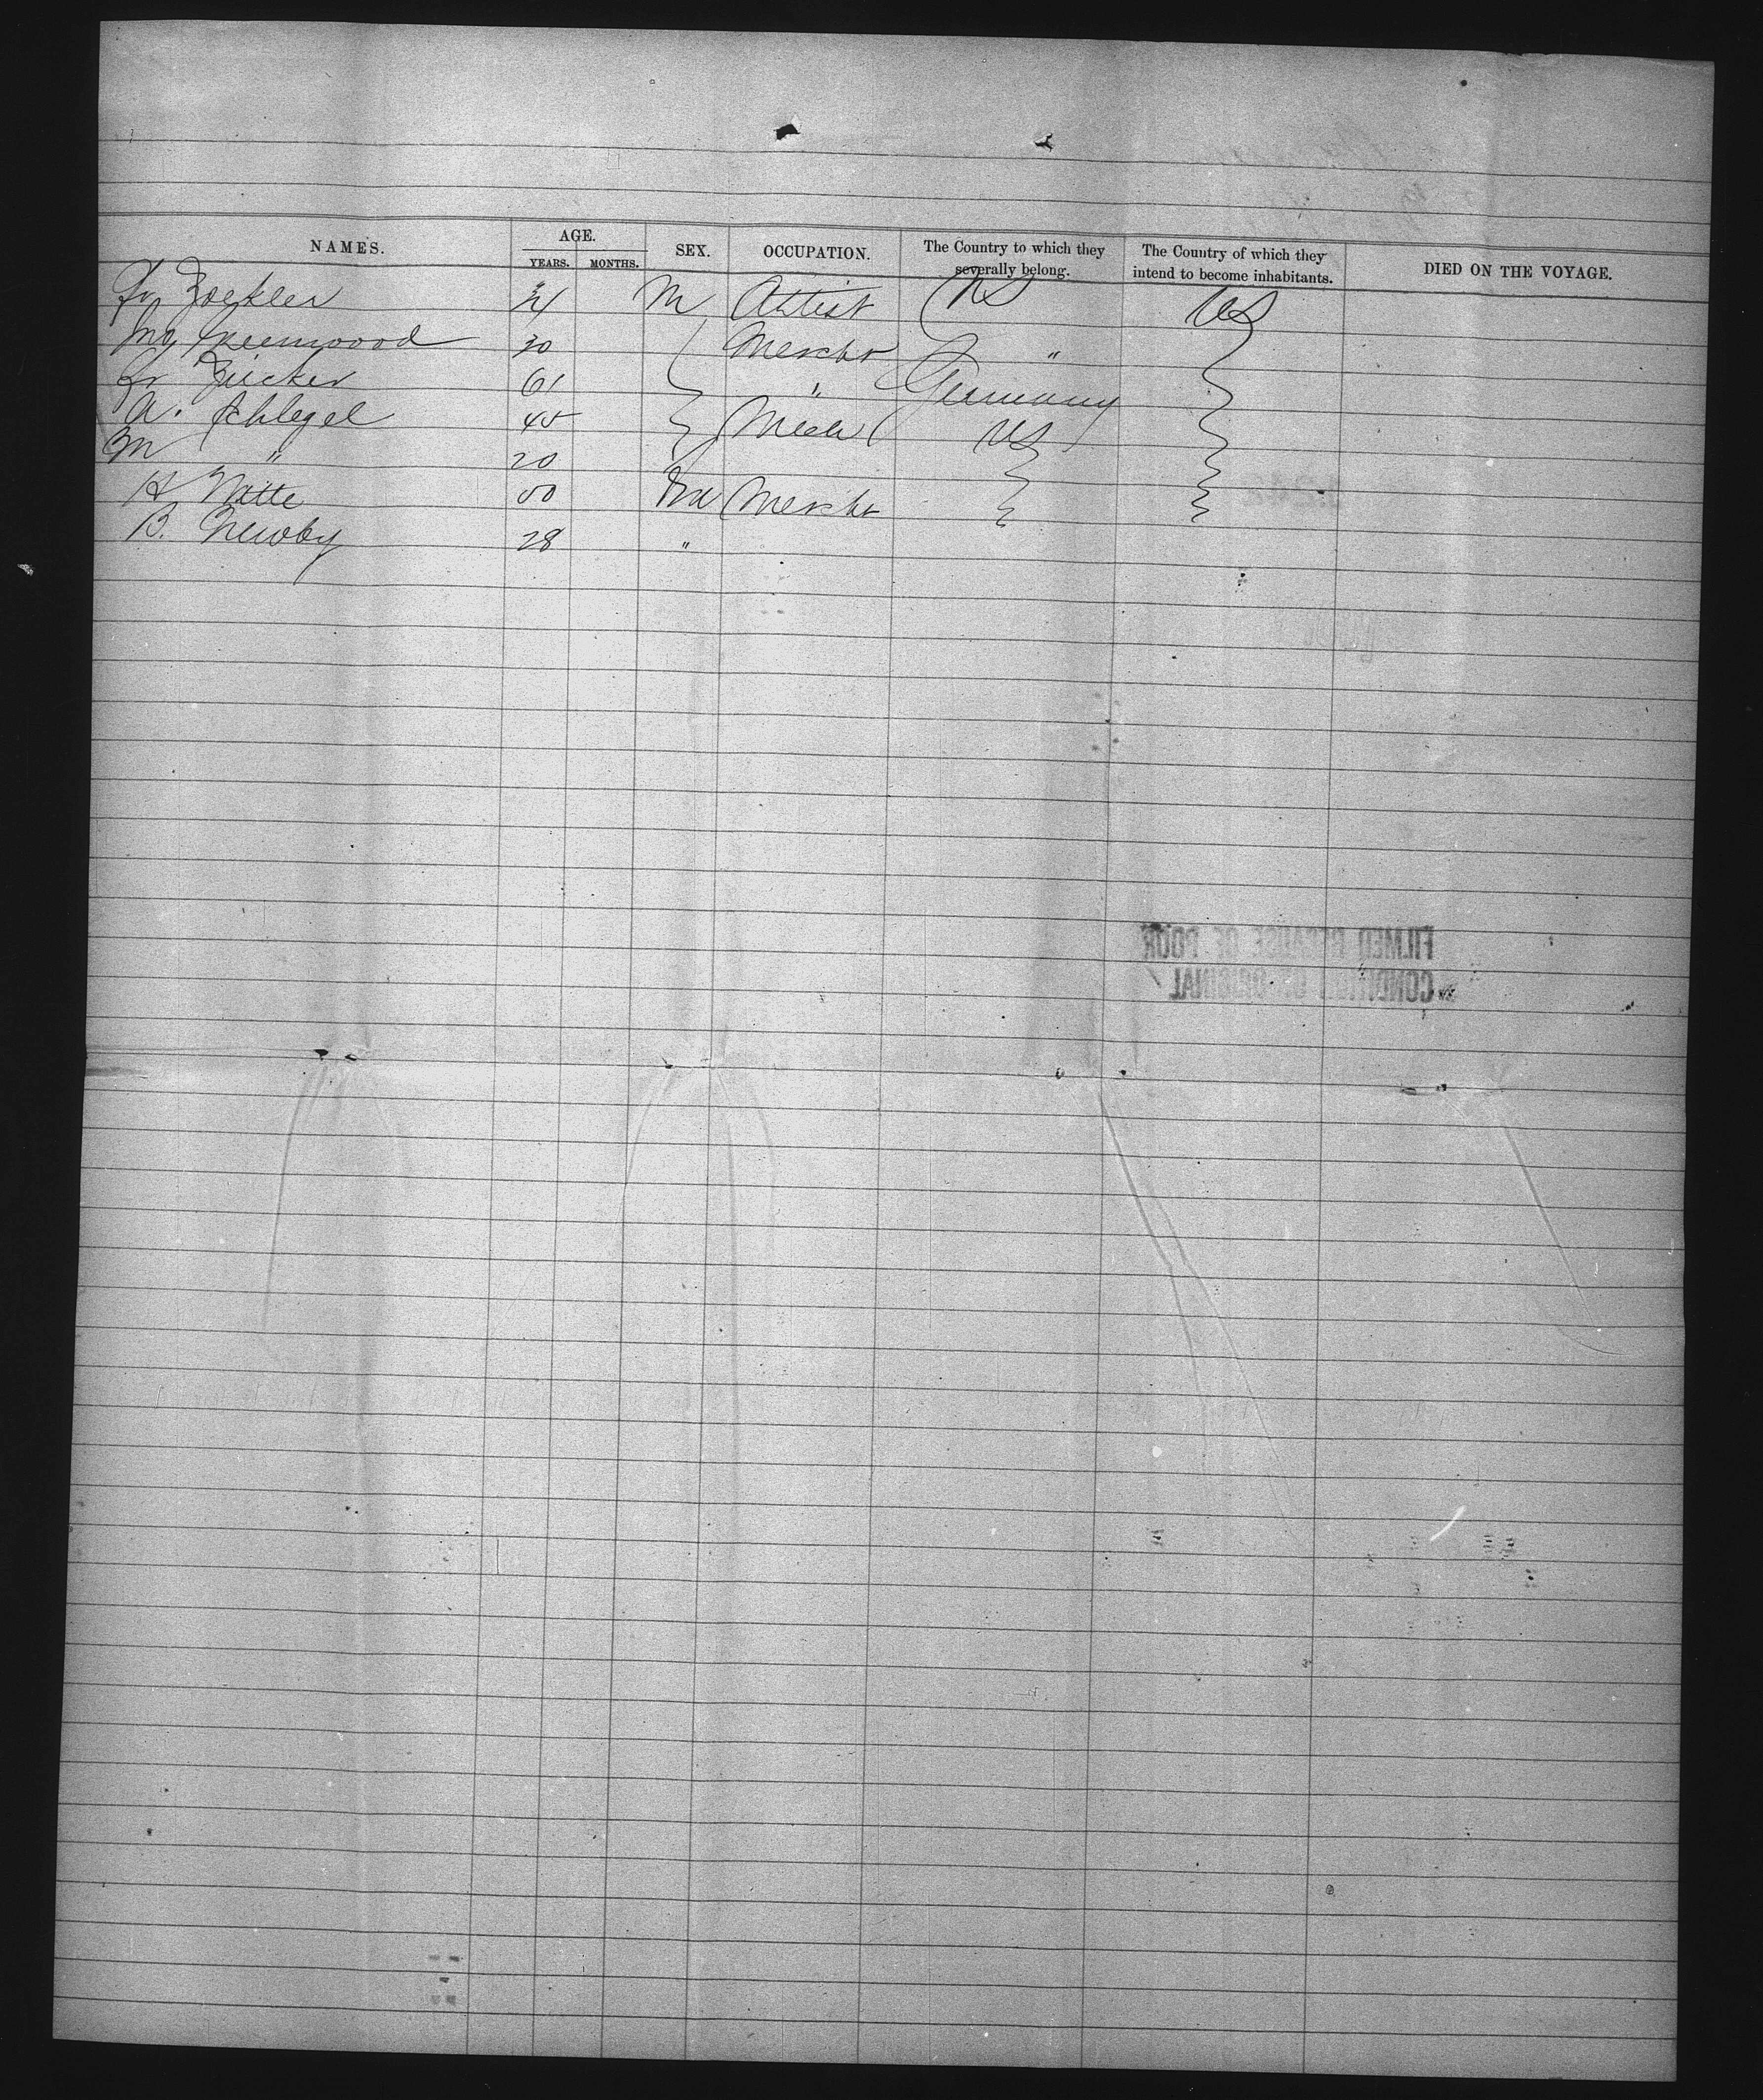 NAMES. AGE. SEX. OCCUPATION. The Country to which they severally belong. The Country of which they intend to become inhabitants. DIED ON THE VOYAGE.
YEARS. MONTHS.
Fr Zoekler 21 M Artist US US
Greenwood 30 Mercht "
Fr Zucker 61 " Germany
A. Schlegel 45 Mech US
M " 20
H Witte 50 Mercht
B. Newby 28 "
FILMED BECAUSE OF POOR
CONDITION OF ORIGINAL